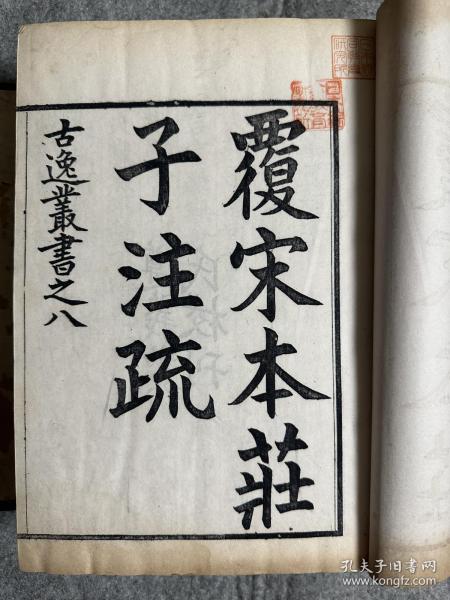 覆宋本莊
子注疏
古逸叢書之八
孔夫子旧书网
www.kongfz.com